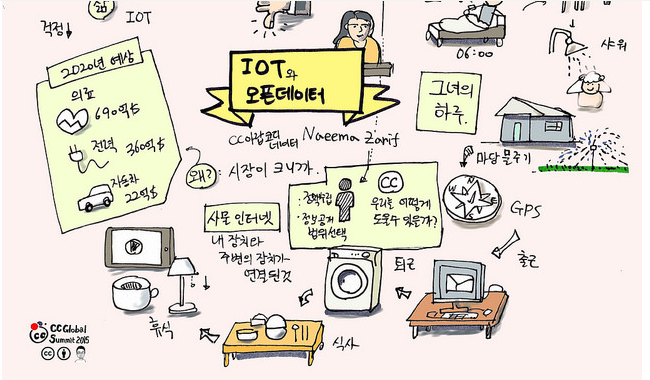 IOT
걱정↓
06:00
샤워
2020년 예상
의료
690억$
전력 360억$
자동차
22억$
IOT와
오픈데이터
그녀의
하루.
Naeema Zarif
왜? : 시장이 크니까.
마당 물주기
CC
우리는 어떻게
도울 수 있을까?
· 정보공개
범위선택
사물 인터넷
내 장치와
주변의 장치가
연결된것
GPS
출근
퇴근
식사
휴식
CC Global
Summit 2015